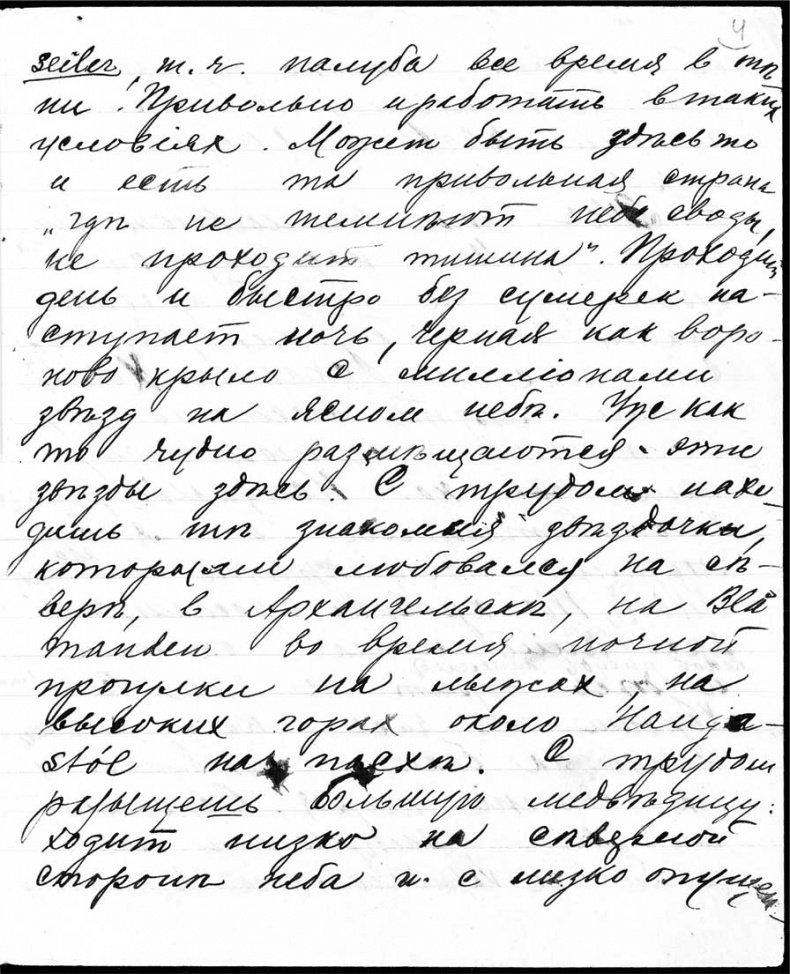 4
seiler, т.ч. палуба все время в тѣ-
ни! Привольно и работать в таких
условіях. Может быть здѣсь то
и есть та привольная страна
„гдѣ не темнѣют неба своды,
не проходит тишина". Проходит
день и быстро без сумерек на-
ступает ночь, черная как воро-
ново крыло с милліонами
звѣзд на ясном небѣ. Уж как
то чудно размѣщаются эти
звѣзды здѣсь. С трудом нахо-
дишь тѣ знакомыя звѣздочки,
которыми любовался на сѣ-
верѣ, в Архангельскѣ, на Blå
manden во время ночной
прогулки на лыжах, на
высоких горах около Hauga-
stöl на пасхѣ. С трудом
разыщешь большую медвѣдицу:
ходит низко на сѣверной
сторонѣ неба и с низко опущен-